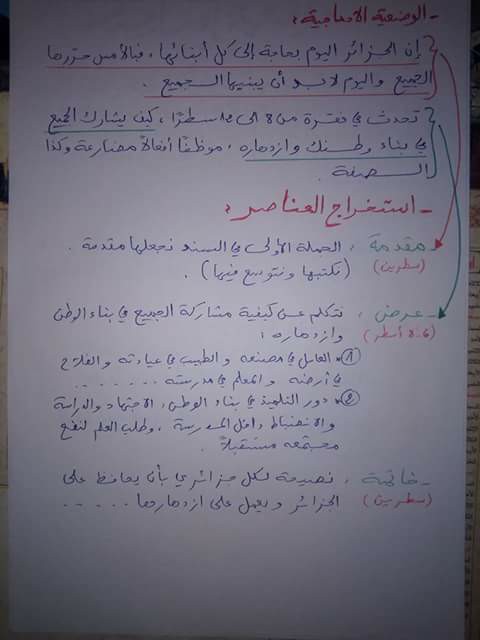 - الوضعية الإدماجية :
إن الجزائر اليوم بحاجة إلى كل أبنائها، فبالأمس حررها
الجميع واليوم لا بد أن يبنيها الجميع .
تحدث في فقرة من 8 الى 12 سطرًا، كيف يشارك الجميع
في بناء وطنك وازدهاره، موظفًا أفعالاً مضارعة وكذا
الصفة .
- استخراج العناصر :
- مقدمة : الجملة الأولى في السند نجعلها مقدمة .
(سطرين) (نكتبها ونتوسع فيها) .
- عرض : نتكلم عن كيفية مشاركة الجميع في بناء الوطن
(6-8 أسطر) وازدهاره :
① العامل في مصنعه والطبيب في عيادته والفلاح
في أرضه والمعلم في مدرسته ........
② دور التلميذ في بناء الوطن، الاجتهاد والدراسة
والانضباط داخل المدرسة، وطلب العلم لنفع
مجتمعه مستقبلاً .
- خاتمة : نصيحة لكل جزائري بأن يحافظ على
(سطرين) الجزائر ويعمل على ازدهارها .....